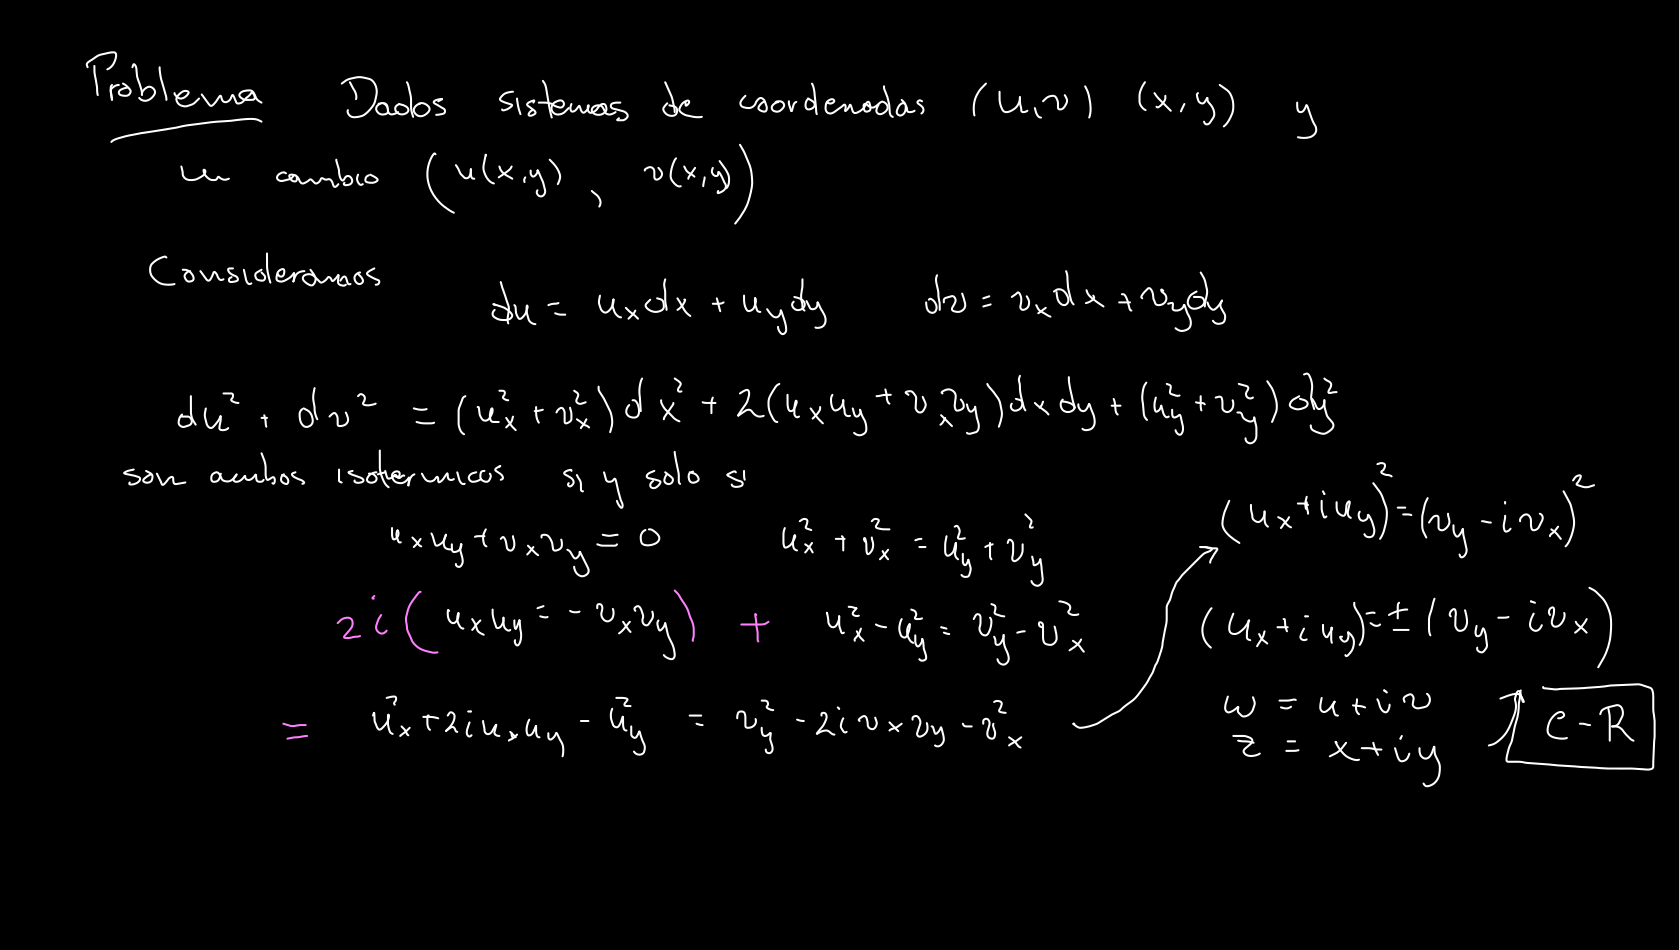 Problema Dados sistemas de coordenadas (u,v) (x,y) y
un cambio (u(x,y), v(x,y))
Consideramos
du = u_x dx + u_y dy dv = v_x dx + v_y dy
du² + dv² = (u_x² + v_x²) dx² + 2(u_x u_y + v_x v_y) dx dy + (u_y² + v_y²) dy²
son ambos isotermicos si y solo si
u_x u_y + v_x v_y = 0 u_x² + v_x² = u_y² + v_y²
2i( u_x u_y = - v_x v_y ) + u_x² - u_y² = v_y² - v_x²
= u_x² + 2i u_x u_y - u_y² = v_y² - 2i v_x v_y - v_x²
(u_x + i u_y)² = (v_y - i v_x)²
(u_x + i u_y) = ± (v_y - i v_x)
w = u + i v
z = x + i y
C-R